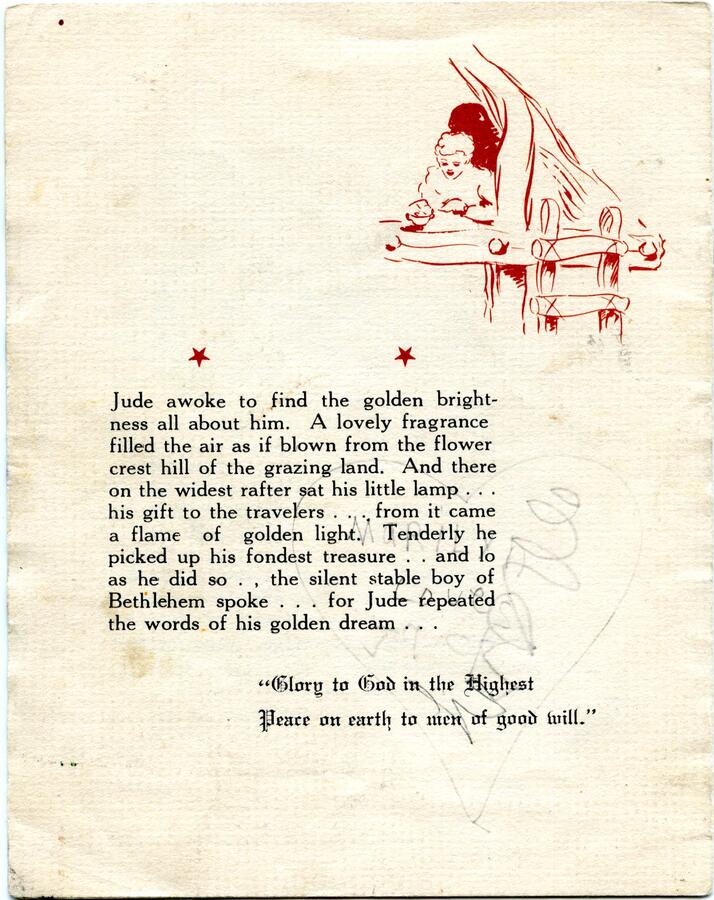 Jude awoke to find the golden bright-
ness all about him. A lovely fragrance
filled the air as if blown from the flower
crest hill of the grazing land. And there
on the widest rafter sat his little lamp . . .
his gift to the travelers . . . from it came
a flame of golden light. Tenderly he
picked up his fondest treasure . . and lo
as he did so . , the silent stable boy of
Bethlehem spoke . . . for Jude repeated
the words of his golden dream . . .
“Glory to God in the Highest
Peace on earth to men of good will.”